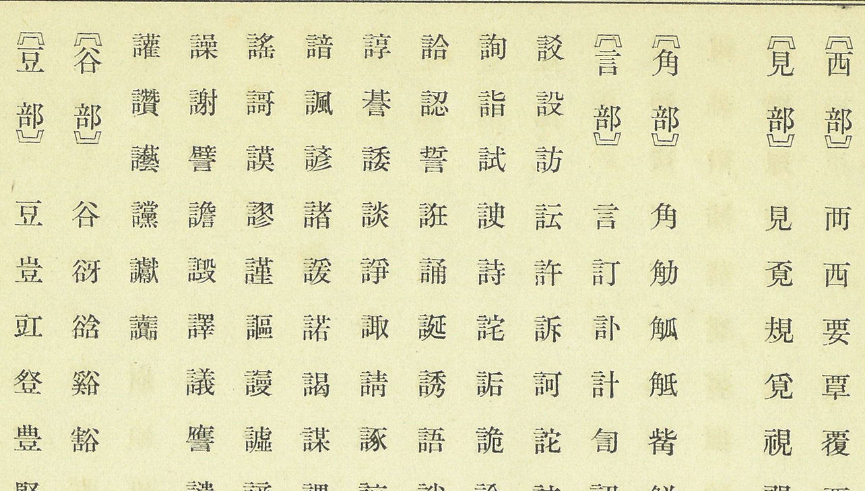 〖西部〗 襾 西 要 覃 覆
〖見部〗 見 覔 規 覓 視
〖角部〗 角 觓 觚 觝 觜
〖言部〗 言 訂 訃 計 訇
設 訪 訁 許 訴 訶 詑
詢 詣 試 詩 詫 詬 詭
詥 認 誓 誑 誦 誕 誘 語
諄 諉 談 諍 諏 請 諑
諳 諷 諺 諸 諼 諾 謁 謀
謠 謌 謨 謬 謹 謳 謾 謔
譟 謝 譬 譫 譭 譯 議 譍
讙 讚 讜 讞 讟
〖谷部〗 谷 谺 谽 谿 豁
〖豆部〗 豆 豈 豇 豋 豊